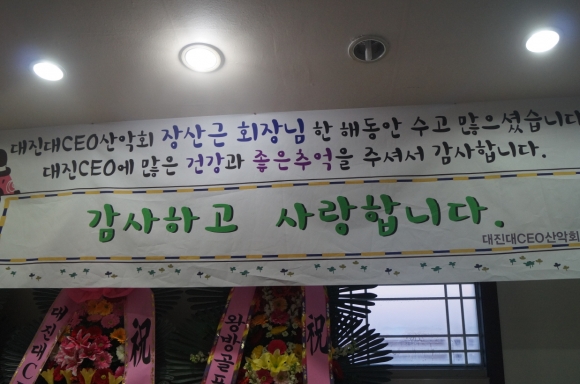 대진대CEO산악회 장산근 회장님 한 해동안 수고 많으셨습니다
대진CEO에 많은 건강과 좋은추억을 주셔서 감사합니다.
감사하고 사랑합니다.
대진대CEO산악회
대진대C
祝
왕방골프
祝